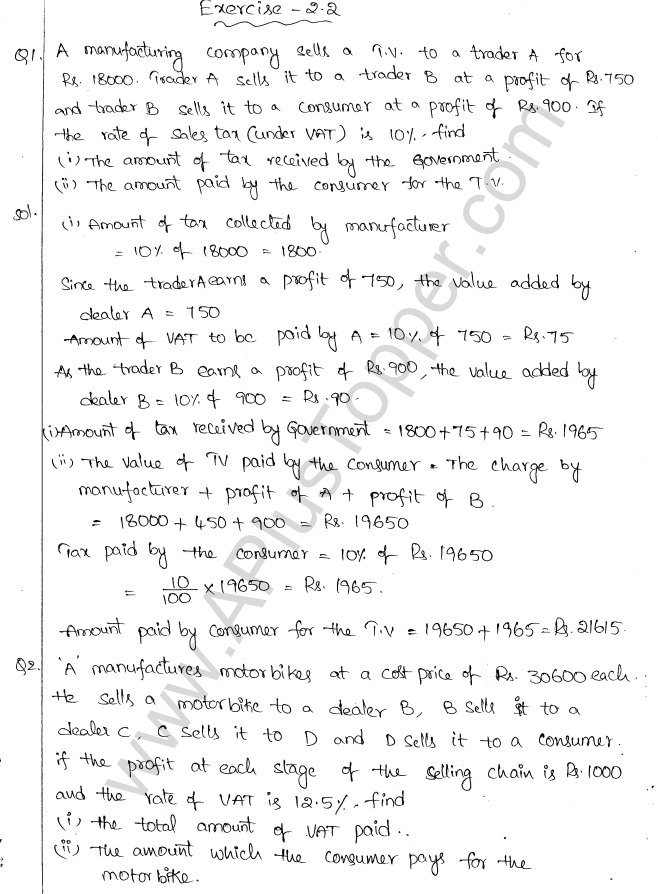 Exercise - 2.2
Q1. A manufacturing company sells a T.V. to a trader A for
Rs. 18000. Trader A sells it to a trader B at a profit of Rs. 750
and trader B sells it to a consumer at a profit of Rs. 900. If
the rate of sales tax (under VAT) is 10%. find
(i) The amount of tax received by the Government.
(ii) The amount paid by the consumer for the T.V.
Sol. (i) Amount of tax collected by manufacturer
= 10% of 18000 = 1800.
Since the trader A earns a profit of 750, the value added by
dealer A = 750
Amount of VAT to be paid by A = 10% of 750 = Rs. 75
As the trader B earns a profit of Rs. 900, the value added by
dealer B = 10% of 900 = Rs. 90.
(i) Amount of tax received by Government = 1800 + 75 + 90 = Rs. 1965
(ii) The value of TV paid by the consumer = The charge by
manufacturer + profit of A + profit of B.
= 18000 + 450 + 900 = Rs. 19650
Tax paid by the consumer = 10% of Rs. 19650
= 10/100 × 19650 = Rs. 1965.
Amount paid by consumer for the T.V = 19650 + 1965 = Rs. 21615.
Q2. 'A' manufactures motorbikes at a cost price of Rs. 30600 each.
He sells a motorbike to a dealer B, B sells it to a
dealer C, C sells it to D and D sells it to a consumer.
if the profit at each stage of the selling chain is Rs. 1000
and the rate of VAT is 12.5%. find
(i) the total amount of VAT paid..
(ii) The amount which the consumer pays for the
motorbike.
www.APlusTopper.com